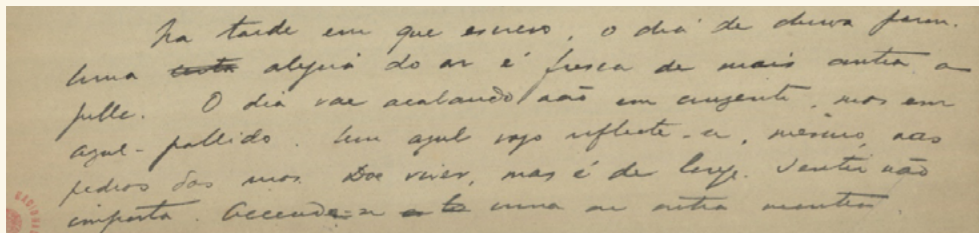 Na tarde em que escrevo, o dia de chuva parou.
Uma alegria do ar é fresca de mais contra a
pelle. O dia vae acabando não em cinzento, mas em
azul-pallido. Um azul vago reflecte-se, mesmo, nas
pedras das ruas. Doe viver, mas é de longe. Sentir não
importa. Accende-se uma ou outra montra.